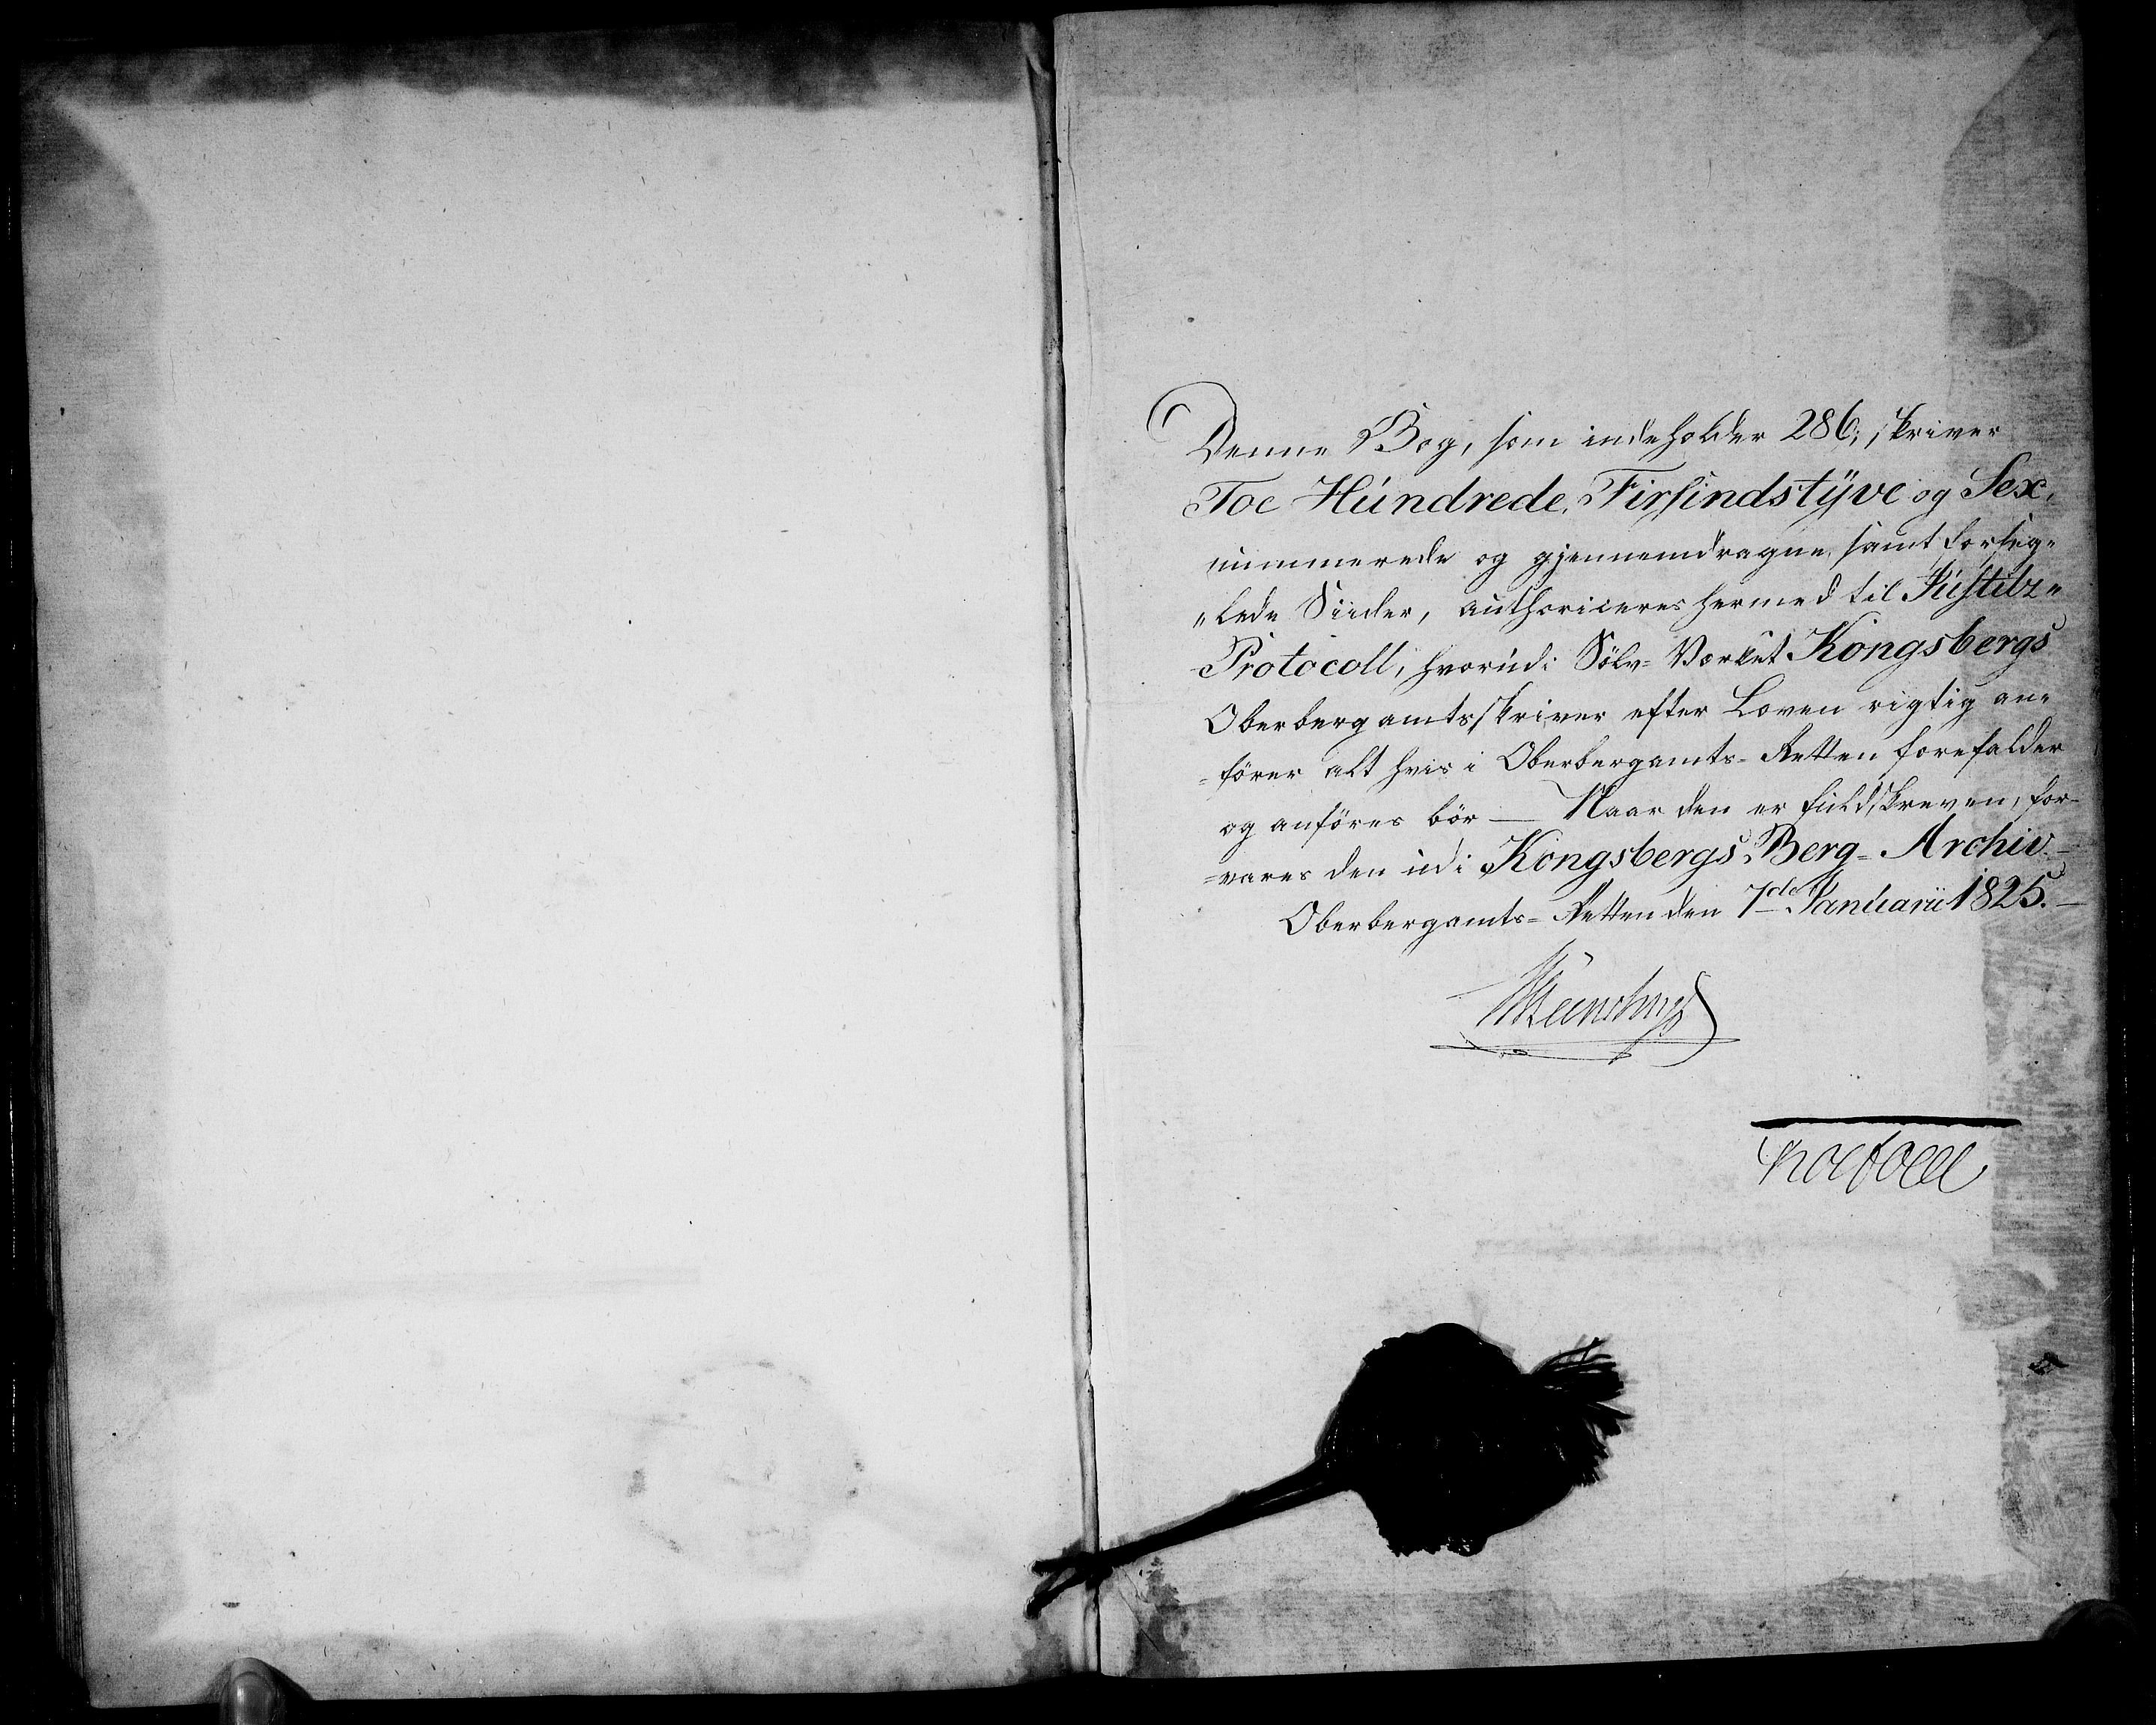 Denne Bog, som indeholder 286; skriver
Toe Hundrede, Firsindstyve og Sex,
nummerede og gjennemdragne, samt forseg„
„lede Siider, authoriceres hermed til Justitz„
Protocoll, hvorudi Sölv=Værket Kongsbergs
Oberbergamtsskriver efter Loven rigtig an„
=förer alt hvis i Oberbergamts=Retten forefalder
og anföres bör — Naar den er fuldskreven, for-
=vares den udi Kongsbergs Berg=Archiv.—
Oberbergamts=Retten den 7de Januarii 1825.—